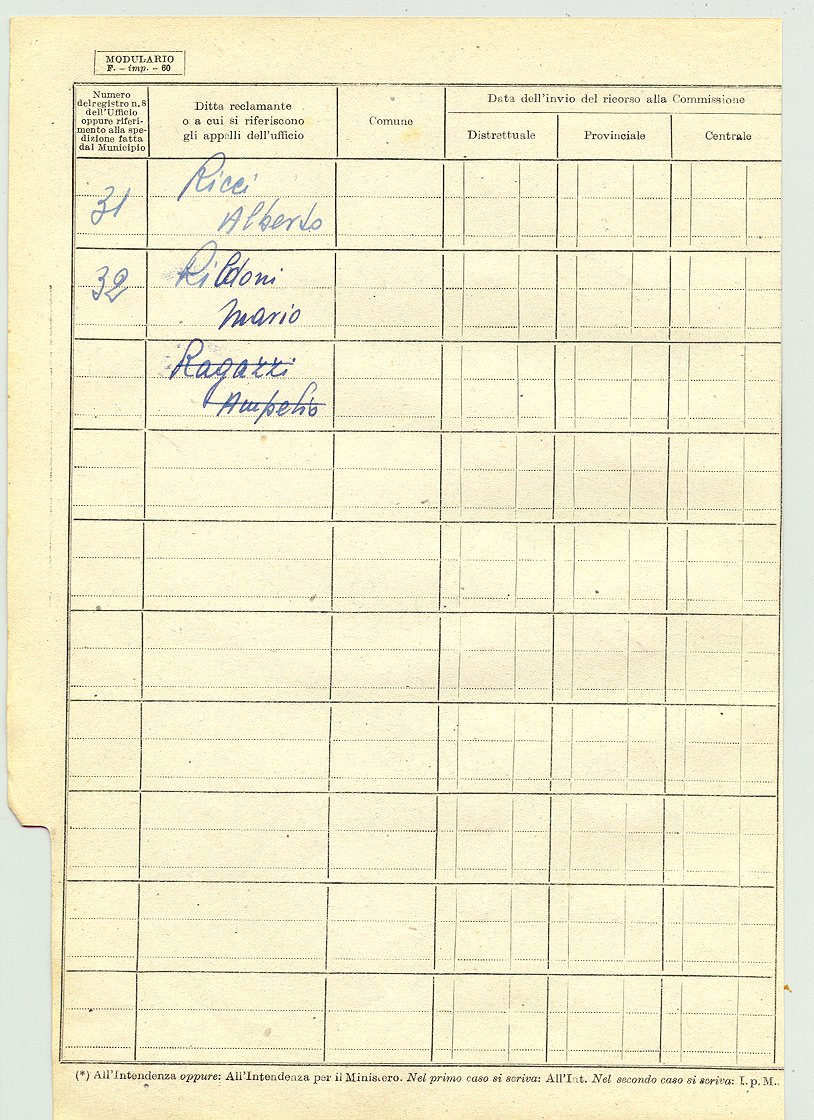 MODULARIO
F. - imp. - 60
Numero
del registro n. 8
dell'Ufficio
oppure riferi-
mento alla spe-
dizione fatta
dal Municipio
Ditta reclamante
o a cui si riferiscono
gli appelli dell'ufficio
Comune
Data dell'invio del ricorso alla Commissione
Distrettuale
Provinciale
Centrale
31
Ricci
Alberto
32
Mario
Ragazzi
Ampelio
(*) All'Intendenza oppure: All'Intendenza per il Ministero. Nel primo caso si scriva: All'Int. Nel secondo caso si scriva: I. p. M..